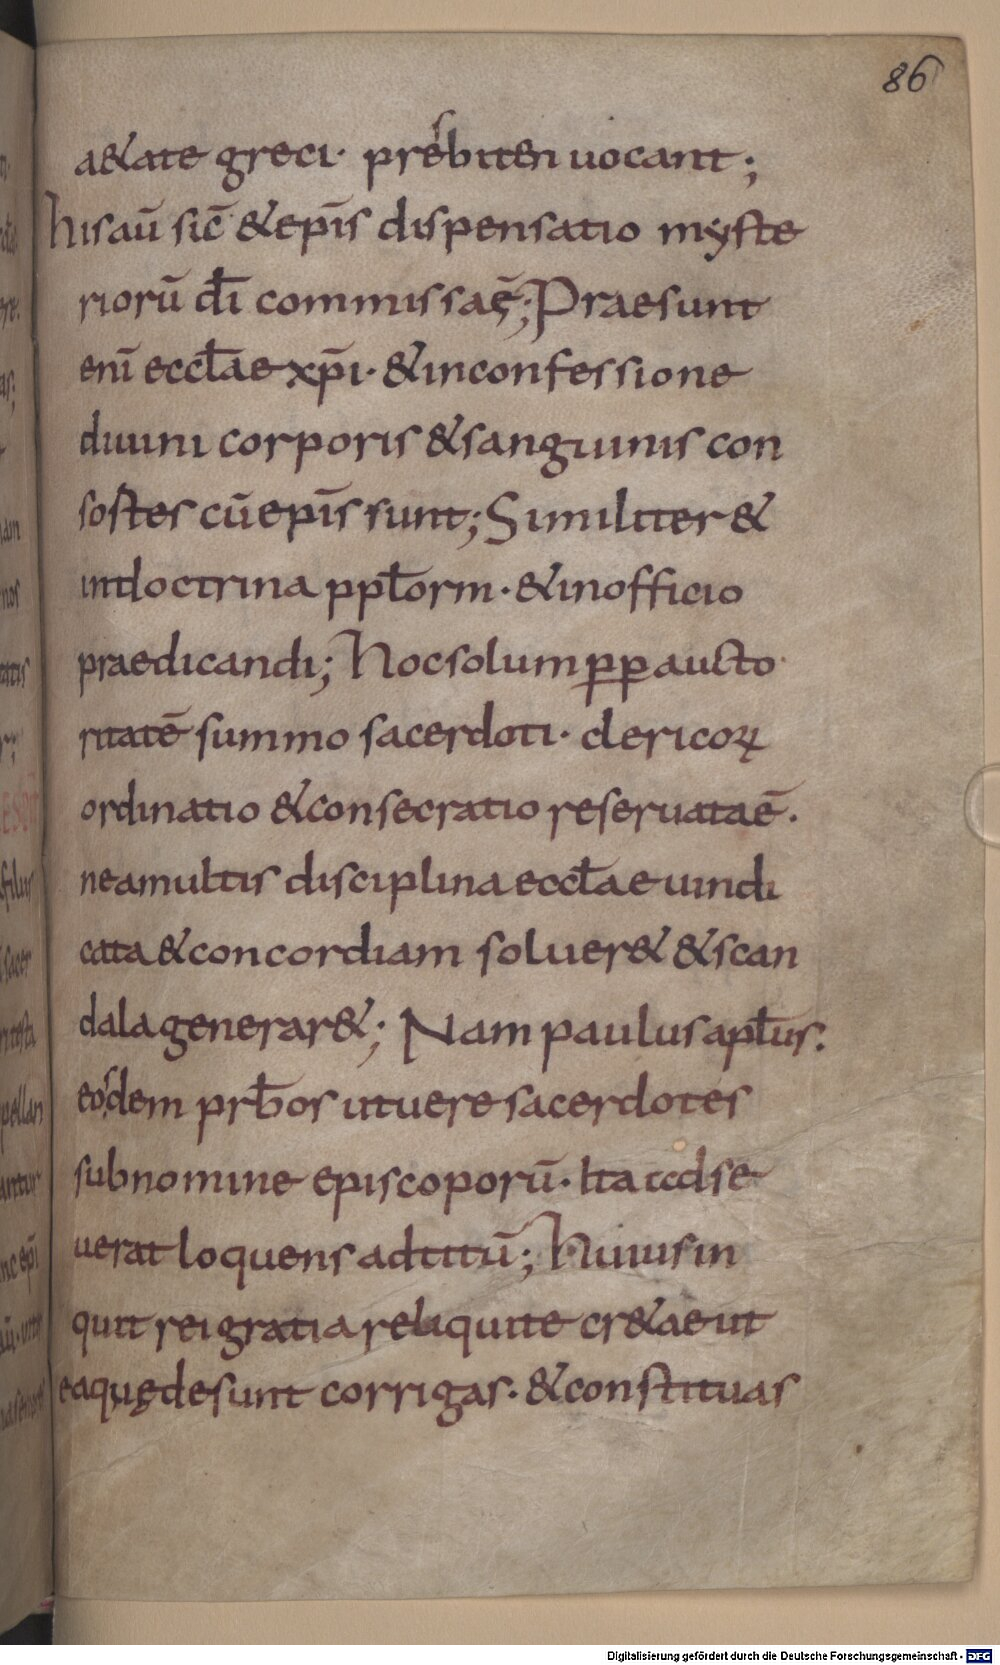 86
a&ate greci· presbiteri uocant;
hisaū sic̄ &ep̄is dispensatio myste
riorū d̄i commissaę̄; Praesunt
enī eccƚae xp̄i· &inconfessione
diuini corporis &sanguinis con
sostes cū ep̄is sunt; Similiter &
indoctrina ppƚorm· &inofficio
praedicandi; Hocsolum ꝑꝑ aucto
ritatē summo sacerdoti· clericoꝝ
ordinatio &consecratio reseruataē·
neamultis disciplina eccƚae uindi
cata &concordiam soluer& &scan
dala generar&; Nam paulus apƚus:
eosdem prƀos utuere sacerdotes
subnomine episcoporū· Ita adse
uerat loquens adtitū; Huius in
quit rei gratia reliqui te cr&ae ut
eaquę desunt corrigas· &constituas
Digitalisierung gefördert durch die Deutsche Forschungsgemeinschaft - DFG